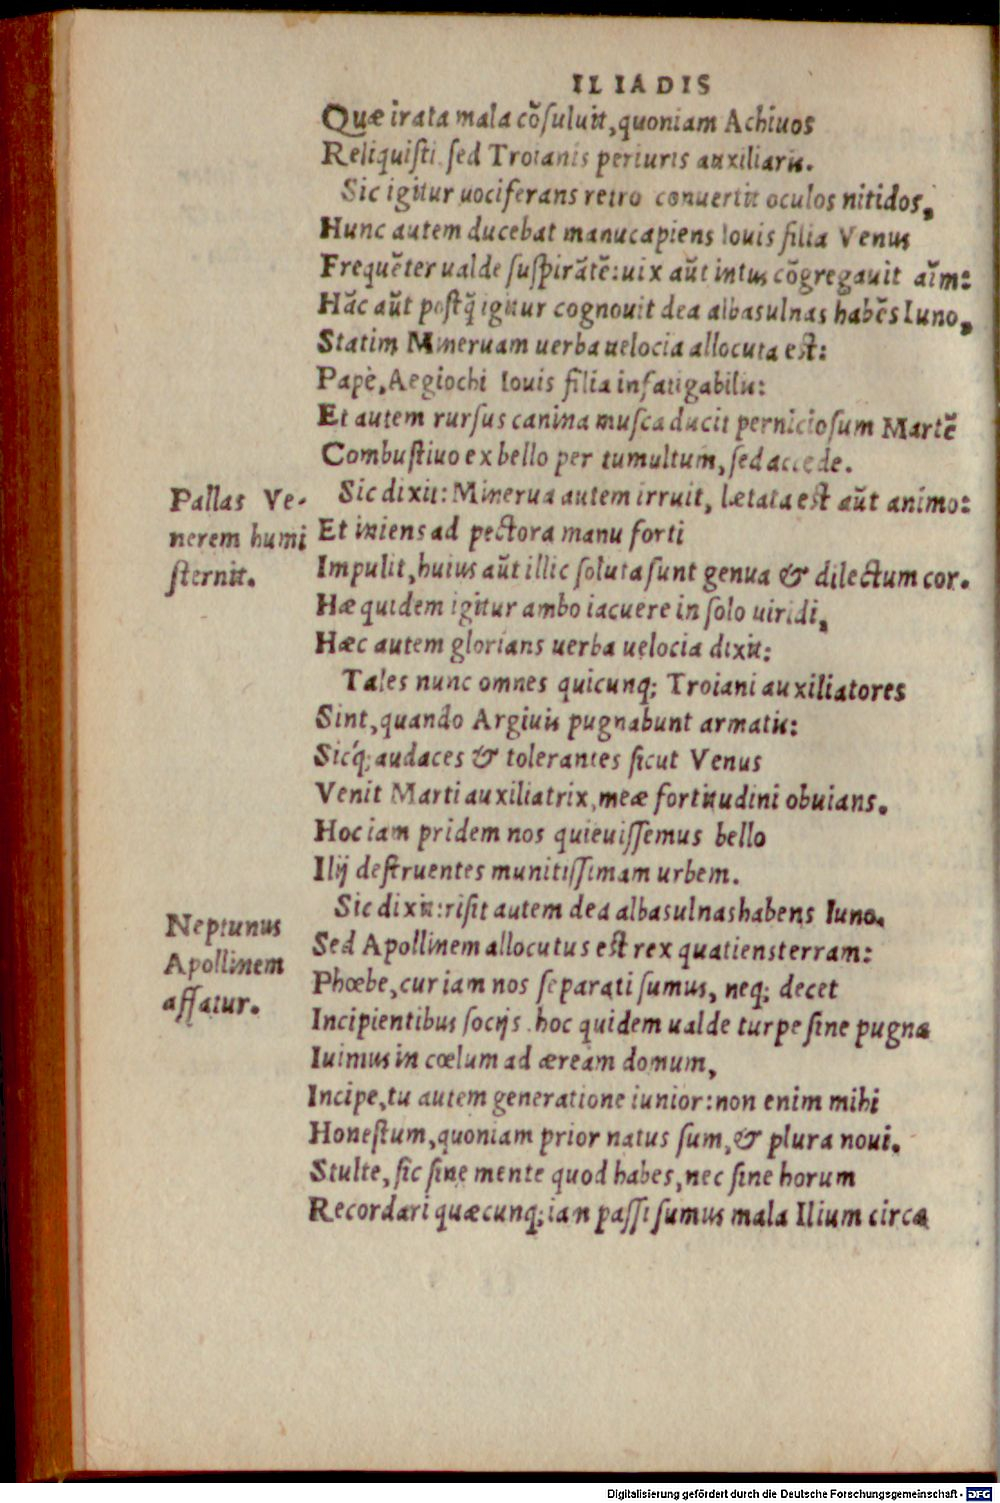 ILIADIS
Quæ irata mala cōſuluit, quoniam Achiuos
Reliquiſti ſed Troianis periuris auxiliaris.
Sic igitur uociferans retro conuertit oculos nitidos,
Hunc autem ducebat manucapiens Iouis filia Venus
Frequēter ualde ſuſpirātē: uix aūt intus cōgregauit aīm:
Hāc aūt poſtq̄ igitur cognouit dea albasulnas habēs Iuno,
Statim Mineruam uerba uelocia allocuta eſt:
Papè, Aegiochi Iouis filia infatigabilis:
Et autem rurſus canina muſca ducit pernicioſum Martē
Combuſtiuo ex bello per tumultum, ſed accede.
Pallas Ve-
nerem humi
ſternit.
Sic dixit: Minerua autem irruit, lætata eſt aūt animo:
Et iniens ad pectora manu forti
Impulit, huius aūt illic ſoluta ſunt genua & dilectum cor.
Hæ quidem igitur ambo iacuere in ſolo uiridi,
Hæc autem glorians uerba uelocia dixit:
Tales nunc omnes quicunq; Troiani auxiliatores
Sint, quando Argiuis pugnabunt armatis:
Sicq́; audaces & tolerantes ſicut Venus
Venit Marti auxiliatrix, meæ fortitudini obuians.
Hoc iam pridem nos quieuiſſemus bello
Ilij deſtruentes munitiſſimam urbem.
Neptunus
Apollinem
affatur.
Sic dixit: riſit autem dea albasulnashabens Iuno.
Sed Apollinem allocutus eſt rex quatiensterram:
Phœbe, cur iam nos ſeparati ſumus, neq; decet
Incipientibus ſocijs. hoc quidem ualde turpe ſine pugna
Iuimus in cœlum ad æream domum,
Incipe, tu autem generatione iunior: non enim mihi
Honeſtum, quoniam prior natus ſum, & plura noui.
Stulte, ſic ſine mente quod habes, nec ſine horum
Recordari quæcunq; ian paſſi ſumus mala Ilium circa
Digitalisierung gefördert durch die Deutsche Forschungsgemeinschaft - DFG